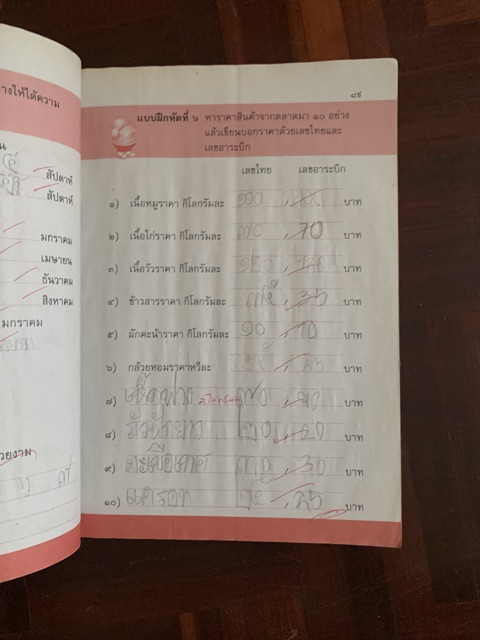 างให้ได้ความ
น
สัปดาห์
สัปดาห์
มกราคม
เมษายน
ธันวาคม
สิงหาคม
มกราคม
วยงาม
๘๙
แบบฝึกหัดที่ ๖ หาราคาสินค้าจากตลาดมา ๑๐ อย่าง
แล้วเขียนบอกราคาด้วยเลขไทยและ
เลขอาระบิก
เลขไทย เลขอาระบิก
๑) เนื้อหมูราคา กิโลกรัมละ ๑๐๐ บาท
๒) เนื้อไก่ราคา กิโลกรัมละ ๗๐ , 70 บาท
๓) เนื้อวัวราคา กิโลกรัมละ บาท
๔) ข้าวสารราคา กิโลกรัมละ , 35 บาท
๕) ผักคะน้าราคา กิโลกรัมละ ๑๐ , 10 บาท
๖) กล้วยหอมราคาหวีละ บาท
๗) เห็ดฟาง บาท
๘) ถั่วฝักยาว ๒๐ , 20 บาท
๙) มะเขือเทศ ๓๐ , 30 บาท
๑๐) แครอท ๒๕ , 25 บาท